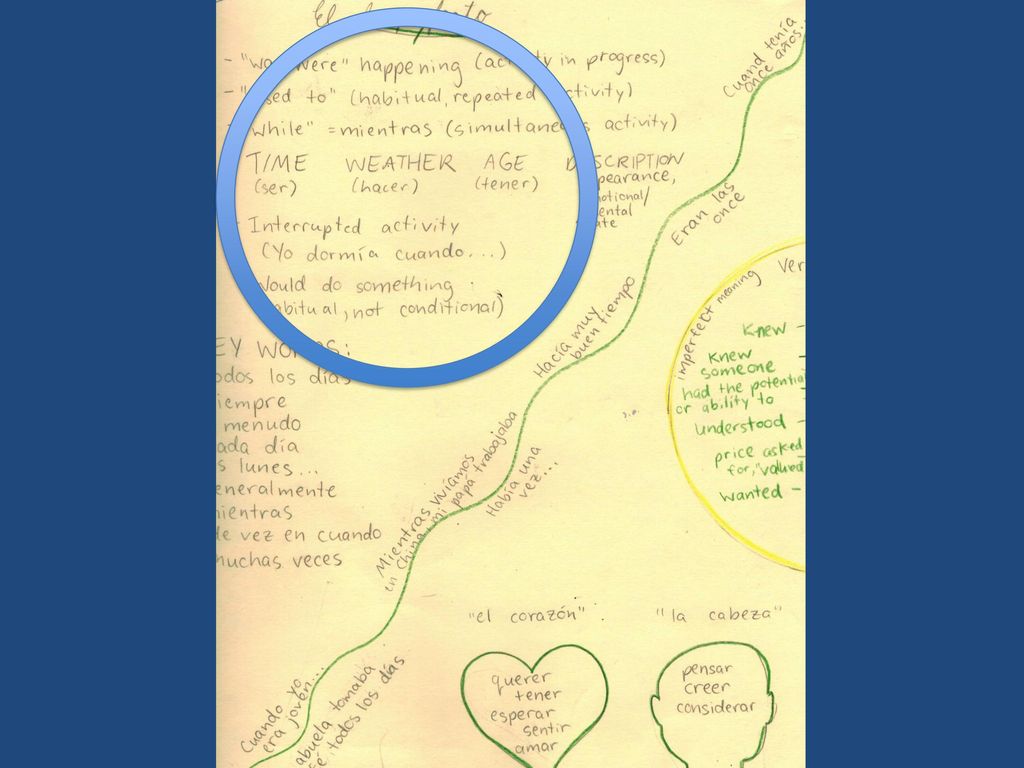 El
- "wa were" happening (ac in progress)
- "sed to" (habitual, repeated ctivity)
while" = mientras (simultane s activity)
TIME WEATHER AGE D SCRIPTION
(ser) (hacer) (tener) pearance,
otional/
ental
ate
Interrupted activity
(Yo dormía cuando...)
Would do something
abitual, not conditional)
EY WO S:
odos los días
iempre
menudo
ada día
s lunes...
eneralmente
ientras
de vez en cuando
muchas veces
Cuand tenía
once años...
Eran las
once
Hacía muy
buen tiempo
Había una
vez...
Mientras vivíamos
en China, mi papá trabajaba
Cuando yo
era joven...
abuela tomaba
fé todos los días
imperfect meaning
Ver
Knew -
Knew
someone
had the potentia
or ability to
understood -
price asked
for, "valued
wanted -
"el corazón"
querer
tener
esperar
sentir
amar
"la cabeza"
pensar
creer
considerar